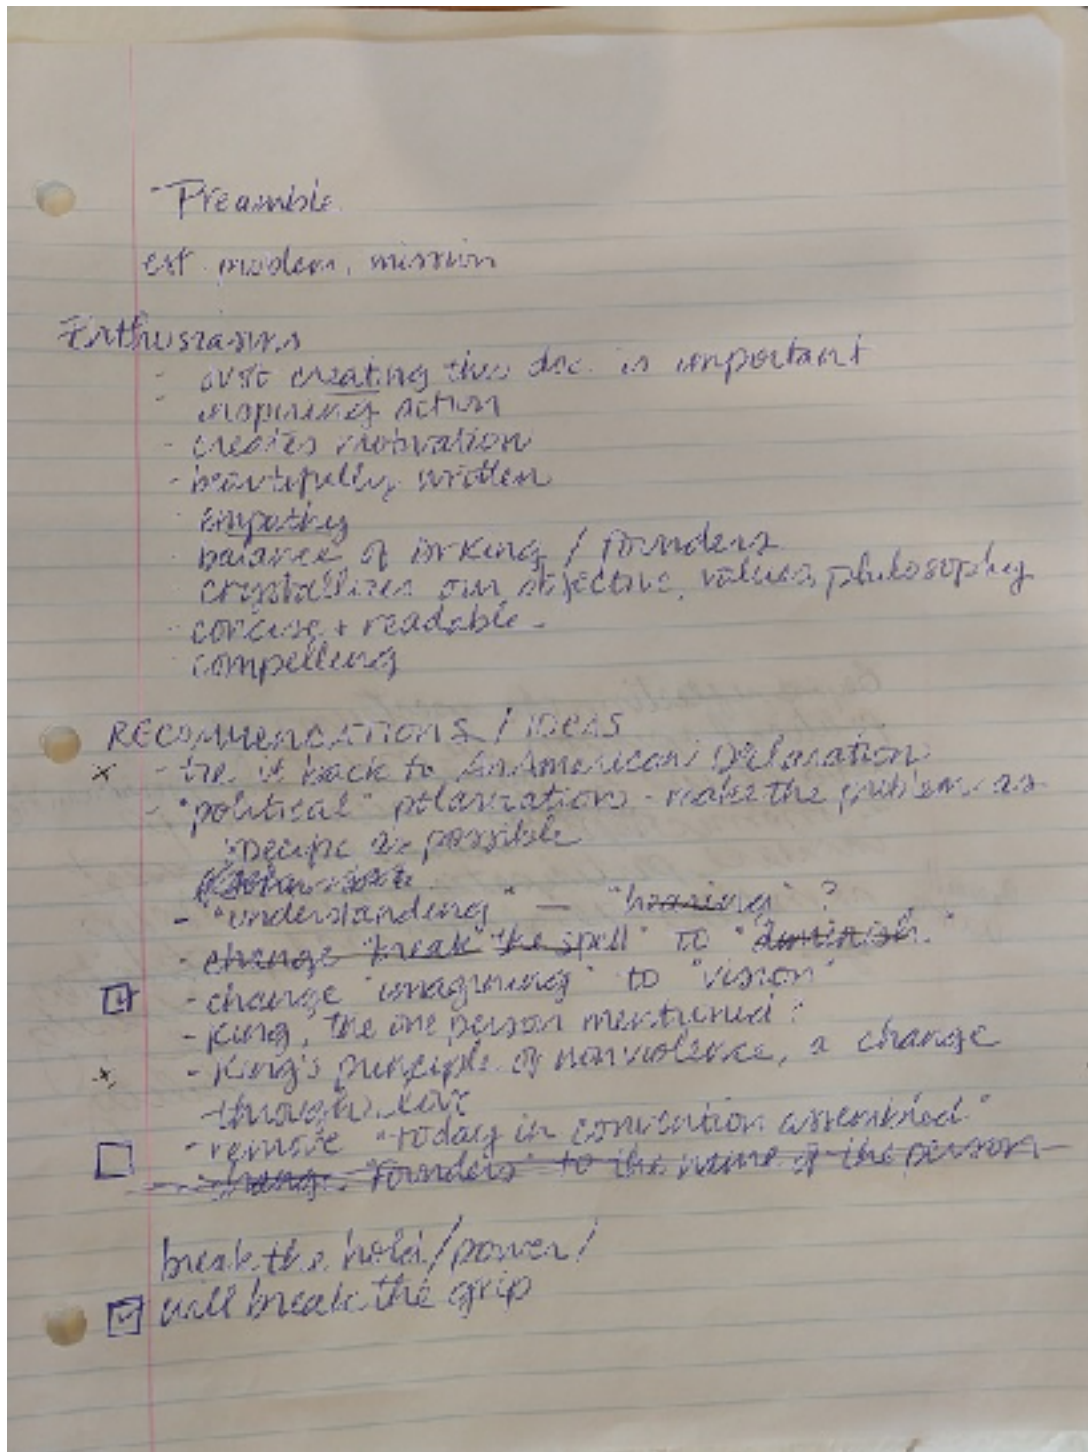 - Preamble
est problem, mission
Enthusiasms
- just creating this doc. is important
- inspiring action
- creates motivation
- beautifully written
- empathy
balance of King / founders
crystallizes our objective, values, philosophy
- concise + readable
- compelling
RECOMMENDATIONS / IDEAS
x - tie it back to An American Declaration
- "political" polarization - make the problem as
specific as possible
- "understanding" — "hearing" ?
- change "break the spell" to "diminish"
- change "imagining" to "vision"
- King, the one person mentioned?
x - King's principle of nonviolence, a change
through love
- remove "today in convention assembled"
- change "founders" to the name of the person
break the hold/power/
will break the grip